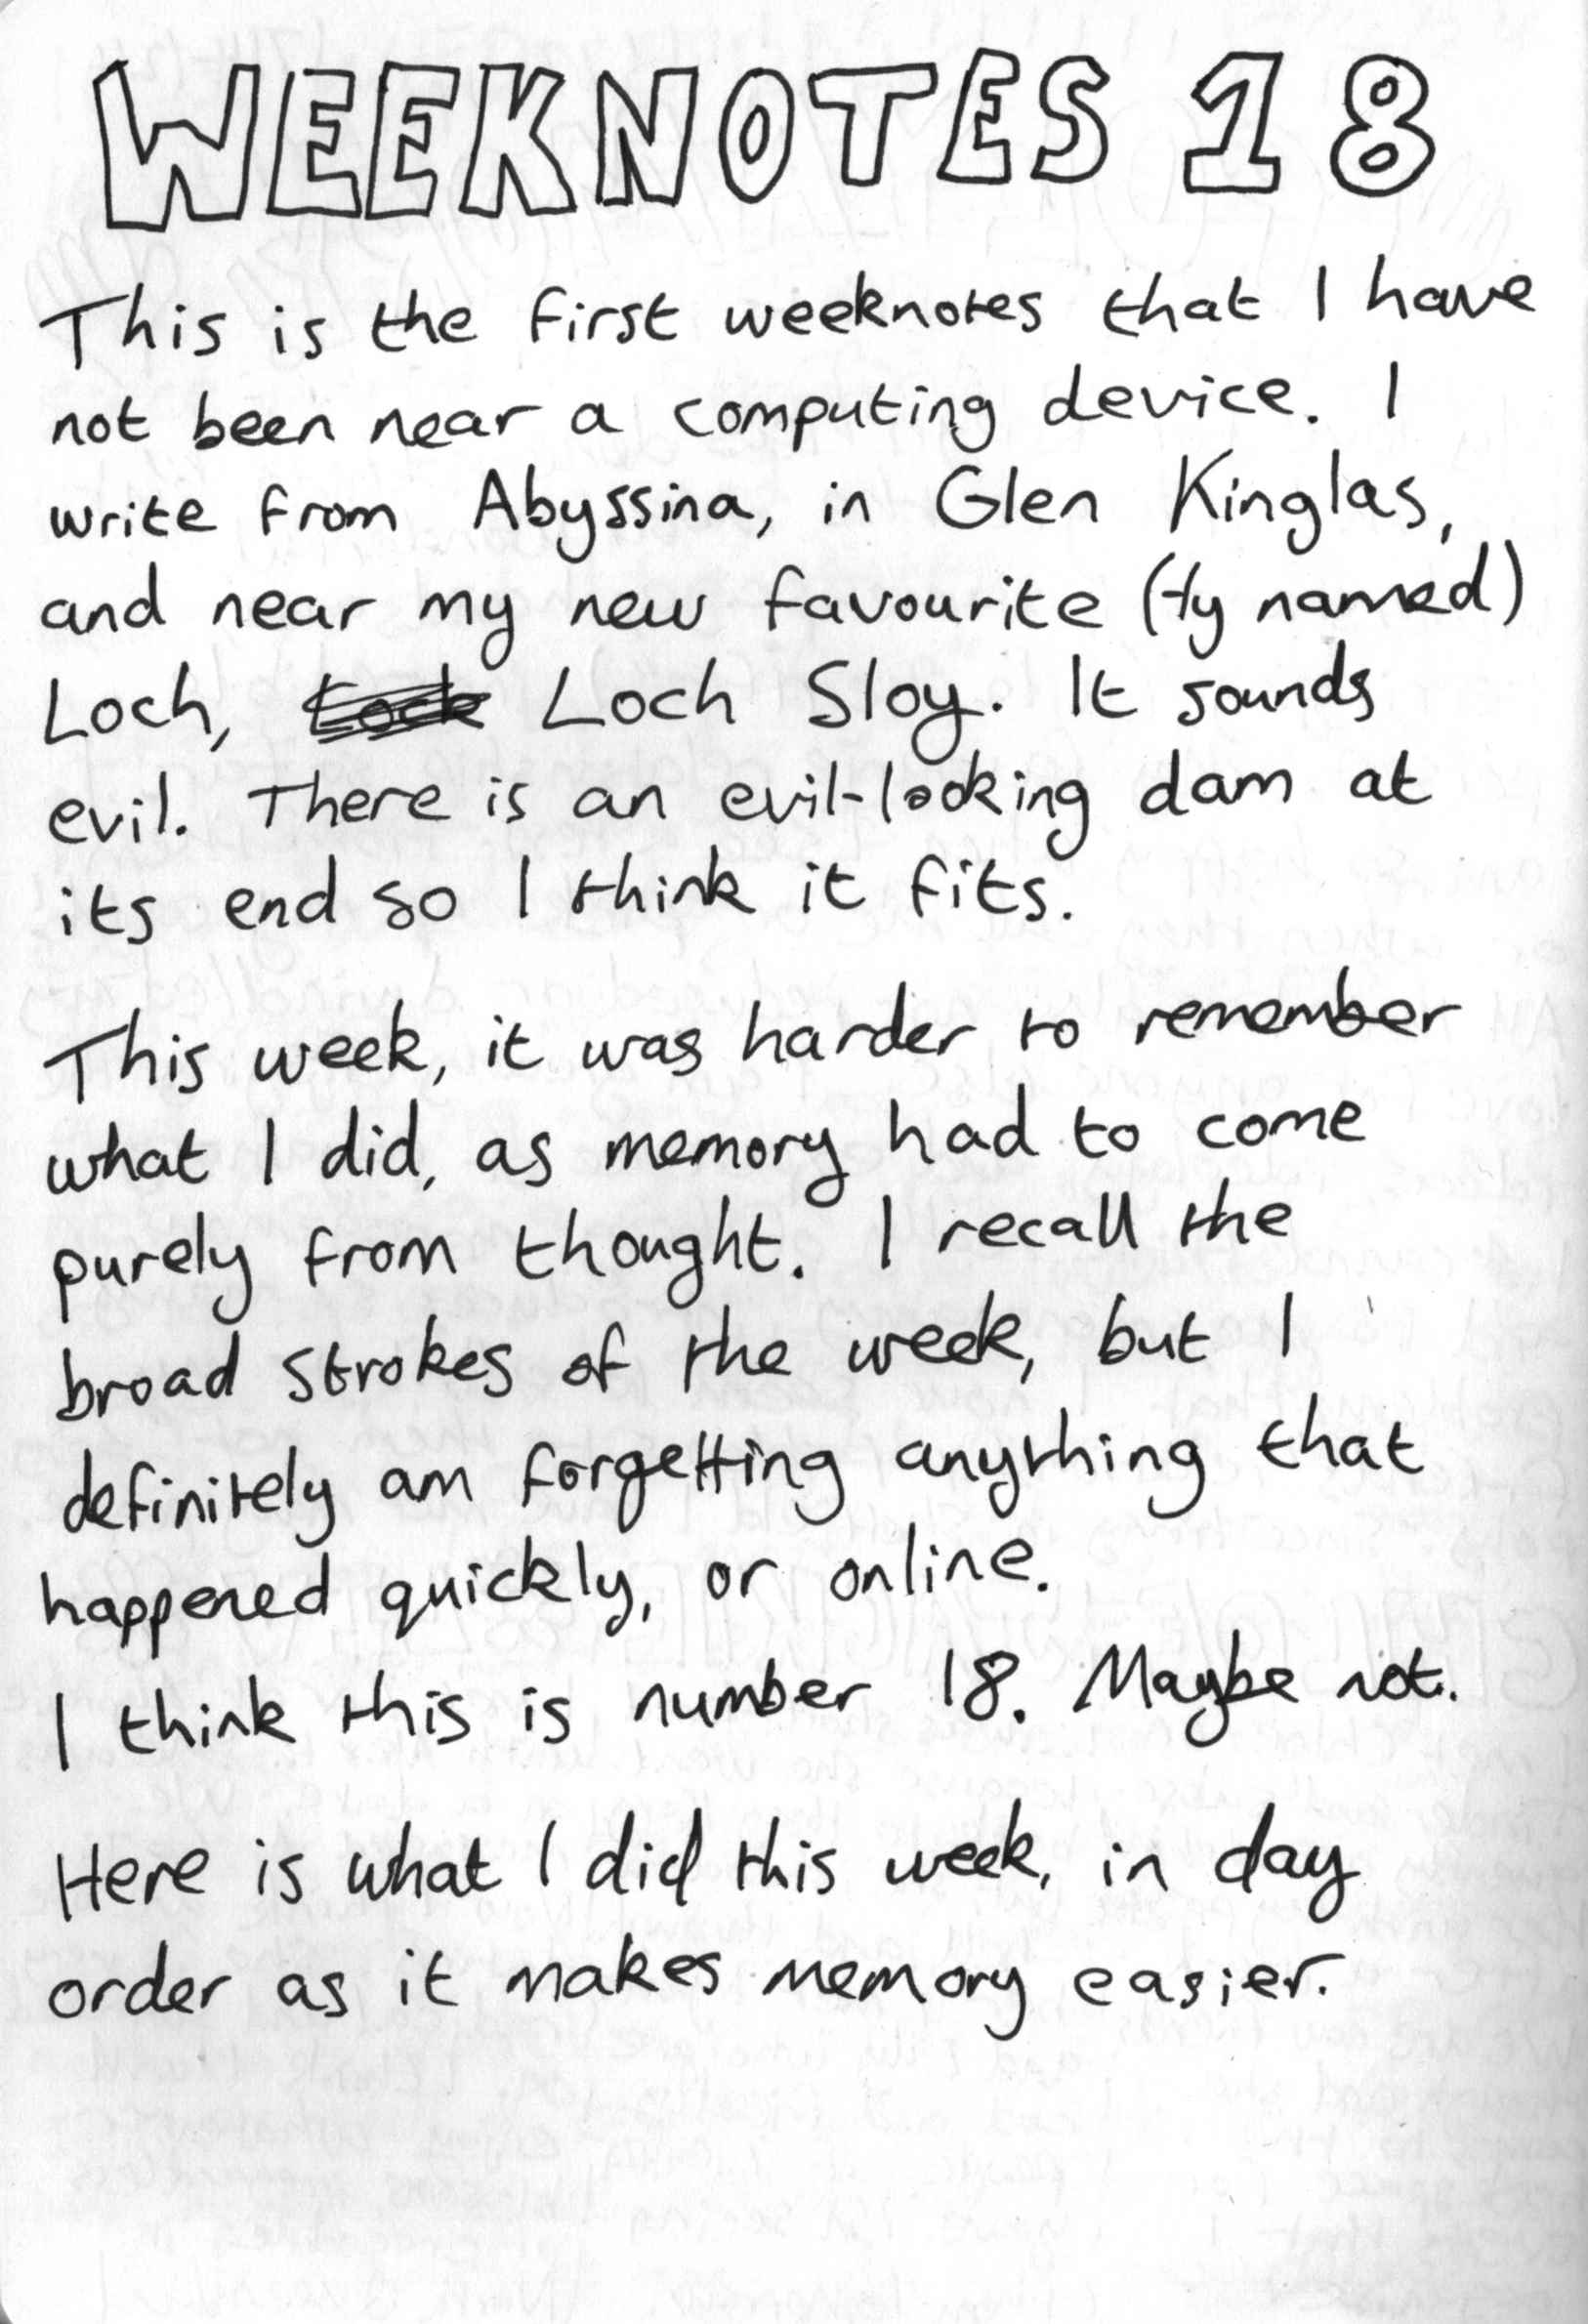 WEEKNOTES 18
This is the first weeknotes that I have
not been near a computing device. I
write from Abyssina, in Glen Kinglas,
and near my new favourite (ly named)
Loch, Loch Sloy. It sounds
evil. There is an evil-looking dam at
its end so I think it fits.
This week, it was harder to remember
what I did, as memory had to come
purely from thought. I recall the
broad strokes of the week, but I
definitely am forgetting anything that
happened quickly, or online.
I think this is number 18. Maybe not.
Here is what I did this week, in day
order as it makes memory easier.